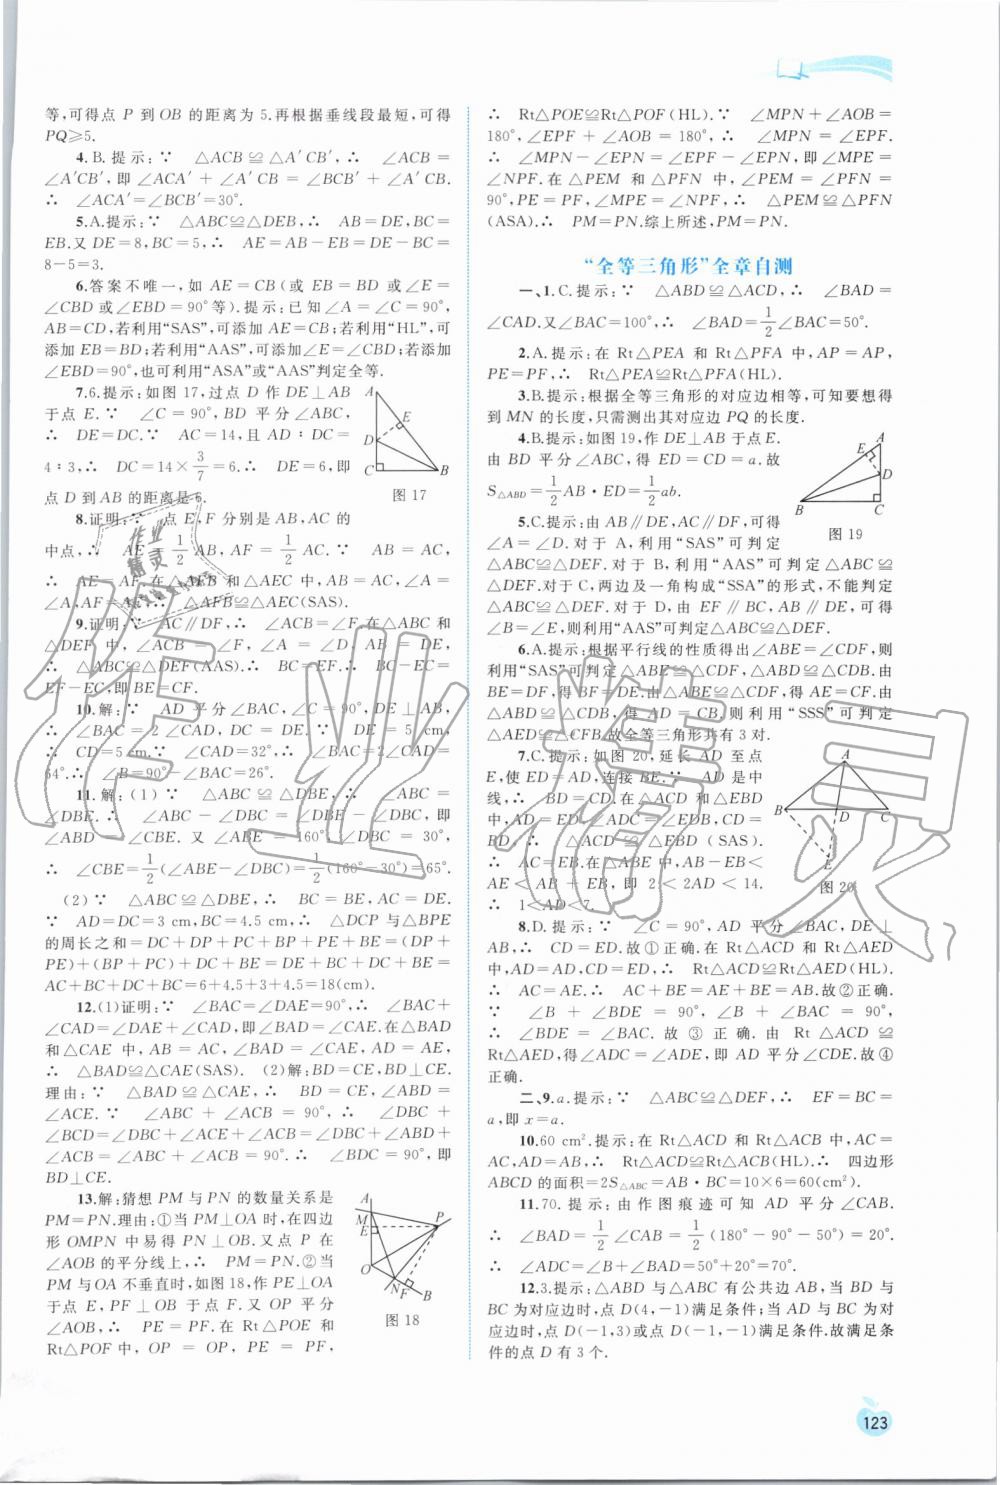 等,可得点 P 到 OB 的距离为 5.再根据垂线段最短,可得
PQ⩾5.
4.B.提示:∵ △ACB≌△A′CB′,∴ ∠ACB=
∠A′CB′,即∠ACA′+∠A′CB=∠BCB′+∠A′CB.
∴ ∠ACA′=∠BCB′=30°.
5.A.提示:∵ △ABC≌△DEB,∴ AB=DE,BC=
EB.又 DE=8,BC=5,∴ AE=AB-EB=DE-BC=
8-5=3.
6.答案不唯一,如 AE=CB(或 EB=BD 或∠E=
∠CBD 或∠EBD=90°等).提示:已知∠A=∠C=90°,
AB=CD,若利用“SAS”,可添加 AE=CB;若利用“HL”,可
添加 EB=BD;若利用“AAS”,可添加∠E=∠CBD;若添加
∠EBD=90°,也可利用“ASA”或“AAS”判定全等.
7.6.提示:如图 17,过点 D 作 DE⊥AB
于点 E.∵ ∠C=90°,BD 平分∠ABC,
∴ DE=DC.∵ AC=14,且 AD∶DC=
4∶3,∴ DC=14×3/7=6.∴ DE=6,即
点 D 到 AB 的距离是 6.
A
E
D
C
B
图 17
8.证明:∵ 点 E,F 分别是 AB,AC 的
中点,∴ AE=1/2AB,AF=1/2AC.∵ AB=AC,
∴ AE=AF.在△AFB 和△AEC 中,AB=AC,∠A=
∠A,AF=AE,∴ △AFB≌△AEC(SAS).
9.证明:∵ AC∥DF,∴ ∠ACB=∠F.在△ABC 和
△DEF 中,∠ACB=∠F,∠A=∠D,AB=DE,
∴ △ABC≌△DEF(AAS).∴ BC=EF.∴ BC-EC=
EF-EC,即 BE=CF.
10.解:∵ AD 平分∠BAC,∠C=90°,DE⊥AB,
∴ ∠BAC=2∠CAD,DC=DE.∵ DE=5 cm,
∴ CD=5 cm.∵ ∠CAD=32°,∴ ∠BAC=2∠CAD=
64°.∴ ∠B=90°-∠BAC=26°.
11.解:(1)∵ △ABC≌△DBE,∴ ∠ABC=
∠DBE.∴ ∠ABC-∠DBC=∠DBE-∠DBC,即
∠ABD=∠CBE.又∠ABE=160°,∠DBC=30°,
∴ ∠CBE=1/2(∠ABE-∠DBC)=1/2(160°-30°)=65°.
(2)∵ △ABC≌△DBE,∴ BC=BE,AC=DE.
∵ AD=DC=3 cm,BC=4.5 cm,∴ △DCP 与△BPE
的周长之和=DC+DP+PC+BP+PE+BE=(DP+
PE)+(BP+PC)+DC+BE=DE+BC+DC+BE=
AC+BC+DC+BC=6+4.5+3+4.5=18(cm).
12.(1)证明:∵ ∠BAC=∠DAE=90°,∴ ∠BAC+
∠CAD=∠DAE+∠CAD,即∠BAD=∠CAE.在△BAD
和△CAE 中,AB=AC,∠BAD=∠CAE,AD=AE,
∴ △BAD≌△CAE(SAS). (2)解:BD=CE,BD⊥CE.
理由:∵ △BAD≌△CAE,∴ BD=CE,∠ABD=
∠ACE.∵ ∠ABC+∠ACB=90°,∴ ∠DBC+
∠BCD=∠DBC+∠ACE+∠ACB=∠DBC+∠ABD+
∠ACB=∠ABC+∠ACB=90°.∴ ∠BDC=90°,即
BD⊥CE.
13.解:猜想 PM 与 PN 的数量关系是
PM=PN.理由:①当 PM⊥OA 时,在四边
形 OMPN 中易得 PN⊥OB.又点 P 在
∠AOB 的平分线上,∴ PM=PN.②当
PM 与 OA 不垂直时,如图 18,作 PE⊥OA
于点 E,PF⊥OB 于点 F.又 OP 平分
∠AOB,∴ PE=PF.在 Rt△POE 和
Rt△POF 中,OP=OP,PE=PF,
A
M
E
P
O
N
F
B
图 18
∴ Rt△POE≌Rt△POF(HL).∵ ∠MPN+∠AOB=
180°,∠EPF+∠AOB=180°,∴ ∠MPN=∠EPF.
∴ ∠MPN-∠EPN=∠EPF-∠EPN,即∠MPE=
∠NPF.在△PEM 和△PFN 中,∠PEM=∠PFN=
90°,PE=PF,∠MPE=∠NPF,∴ △PEM≌△PFN
(ASA).∴ PM=PN.综上所述,PM=PN.
“全等三角形”全章自测
一、1.C.提示:∵ △ABD≌△ACD,∴ ∠BAD=
∠CAD.又∠BAC=100°,∴ ∠BAD=1/2∠BAC=50°.
2.A.提示:在 Rt△PEA 和 Rt△PFA 中,AP=AP,
PE=PF,∴ Rt△PEA≌Rt△PFA(HL).
3.B.提示:根据全等三角形的对应边相等,可知要想得
到 MN 的长度,只需测出其对应边 PQ 的长度.
4.B.提示:如图 19,作 DE⊥AB 于点 E.
由 BD 平分∠ABC,得 ED=CD=a.故
S△ABD=1/2AB·ED=1/2ab.
A
E
D
B
C
图 19
5.C.提示:由 AB∥DE,AC∥DF,可得
∠A=∠D.对于 A,利用“SAS”可判定
△ABC≌△DEF.对于 B,利用“AAS”可判定△ABC≌
△DEF.对于 C,两边及一角构成“SSA”的形式,不能判定
△ABC≌△DEF.对于 D,由 EF∥BC,AB∥DE,可得
∠B=∠E,则利用“AAS”可判定△ABC≌△DEF.
6.A.提示:根据平行线的性质得出∠ABE=∠CDF,则
利用“SAS”可判定△ABE≌△CDF,△ABD≌△CDB.由
BE=DF,得 BF=DE.由△ABE≌△CDF,得 AE=CF.由
△ABD≌△CDB,得 AD=CB,则利用“SSS”可判定
△AED≌△CFB.故全等三角形共有 3 对.
7.C.提示:如图 20,延长 AD 至点
E,使 ED=AD,连接 BE.∵ AD 是中
线,∴ BD=CD.在△ACD 和△EBD
中,AD=ED,∠ADC=∠EDB,CD=
BD,∴ △ACD≌△EBD(SAS).
∴ AC=EB.在△ABE 中,AB-EB<
AE<AB+EB,即 2<2AD<14.
∴ 1<AD<7.
A
B
D
C
E
图 20
8.D.提示:∵ ∠C=90°,AD 平分∠BAC,DE⊥
AB,∴ CD=ED.故①正确.在 Rt△ACD 和 Rt△AED
中,AD=AD,CD=ED,∴ Rt△ACD≌Rt△AED(HL).
∴ AC=AE.∴ AC+BE=AE+BE=AB.故②正确.
∵ ∠B+∠BDE=90°,∠B+∠BAC=90°,
∴ ∠BDE=∠BAC.故③正确.由 Rt△ACD≌
Rt△AED,得∠ADC=∠ADE,即 AD 平分∠CDE.故④
正确.
二、9.a.提示:∵ △ABC≌△DEF,∴ EF=BC=
a,即 x=a.
10.60 cm².提示:在 Rt△ACD 和 Rt△ACB 中,AC=
AC,AD=AB,∴ Rt△ACD≌Rt△ACB(HL).∴ 四边形
ABCD 的面积=2S△ABC=AB·BC=10×6=60(cm²).
11.70.提示:由作图痕迹可知 AD 平分∠CAB.
∴ ∠BAD=1/2∠CAB=1/2(180°-90°-50°)=20°.
∴ ∠ADC=∠B+∠BAD=50°+20°=70°.
12.3.提示:△ABD 与△ABC 有公共边 AB,当 BD 与
BC 为对应边时,点 D(4,-1)满足条件;当 AD 与 BC 为对
应边时,点 D(-1,3)或点 D(-1,-1)满足条件.故满足条
件的点 D 有 3 个.
123
作业精灵